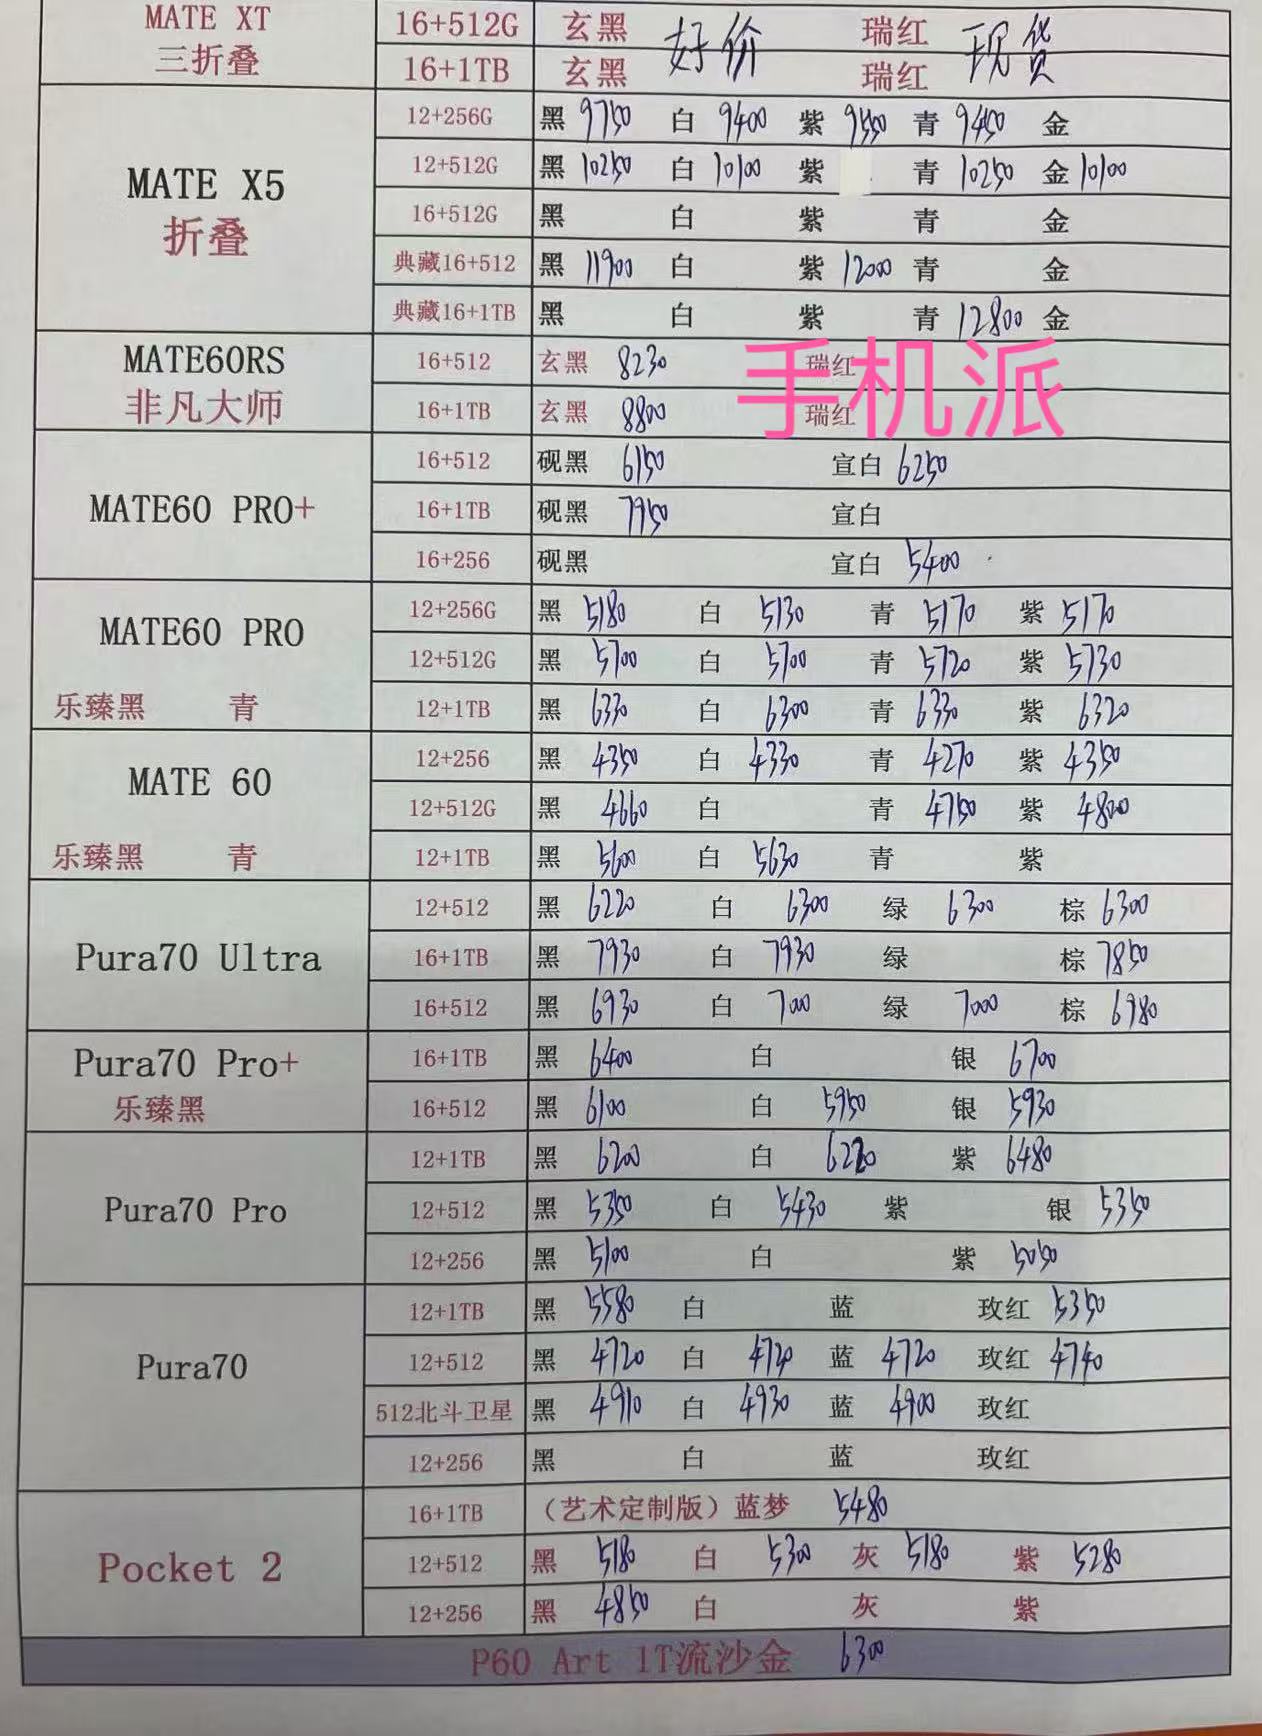 MATE XT 16+512G 玄黑 好价 瑞红 现货
三折叠 16+1TB 玄黑 瑞红
12+256G 黑 9750 白 9400 紫 9550 青 9450 金
MATE X5 12+512G 黑 10250 白 10100 紫 青 10250 金 10100
折叠 16+512G 黑 白 紫 青 金
典藏16+512 黑 11900 白 紫 12000 青 金
典藏16+1TB 黑 白 紫 青 12800 金
MATE60RS 16+512 玄黑 8230 瑞红
手机派
非凡大师 16+1TB 玄黑 8800 瑞红
16+512 砚黑 6150 宣白 6250
MATE60 PRO+ 16+1TB 砚黑 7950 宣白
16+256 砚黑 宣白 5400
MATE60 PRO 12+256G 黑 5180 白 5130 青 5170 紫 5170
12+512G 黑 5700 白 5700 青 5720 紫 5730
乐臻黑 青 12+1TB 黑 6330 白 6300 青 6330 紫 6320
MATE 60 12+256 黑 4350 白 4330 青 4270 紫 4350
12+512G 黑 4660 白 青 4750 紫 4800
乐臻黑 青 12+1TB 黑 5600 白 5630 青 紫
12+512 黑 6220 白 6300 绿 6300 棕 6300
Pura70 Ultra 16+1TB 黑 7930 白 7930 绿 棕 7850
16+512 黑 6930 白 7000 绿 7000 棕 6980
Pura70 Pro+ 16+1TB 黑 6400 白 银 6700
乐臻黑 16+512 黑 6100 白 5950 银 5930
12+1TB 黑 6200 白 6220 紫 6480
Pura70 Pro 12+512 黑 5350 白 5430 紫 银 5350
12+256 黑 5100 白 紫 5050
12+1TB 黑 5580 白 蓝 玫红 5350
Pura70 12+512 黑 4720 白 4720 蓝 4720 玫红 4740
512北斗卫星 黑 4910 白 4930 蓝 4900 玫红
12+256 黑 白 蓝 玫红
16+1TB （艺术定制版）蓝梦 5480
Pocket 2 12+512 黑 5180 白 5300 灰 5180 紫 5280
12+256 黑 4850 白 灰 紫
P60 Art 1T流沙金 6300